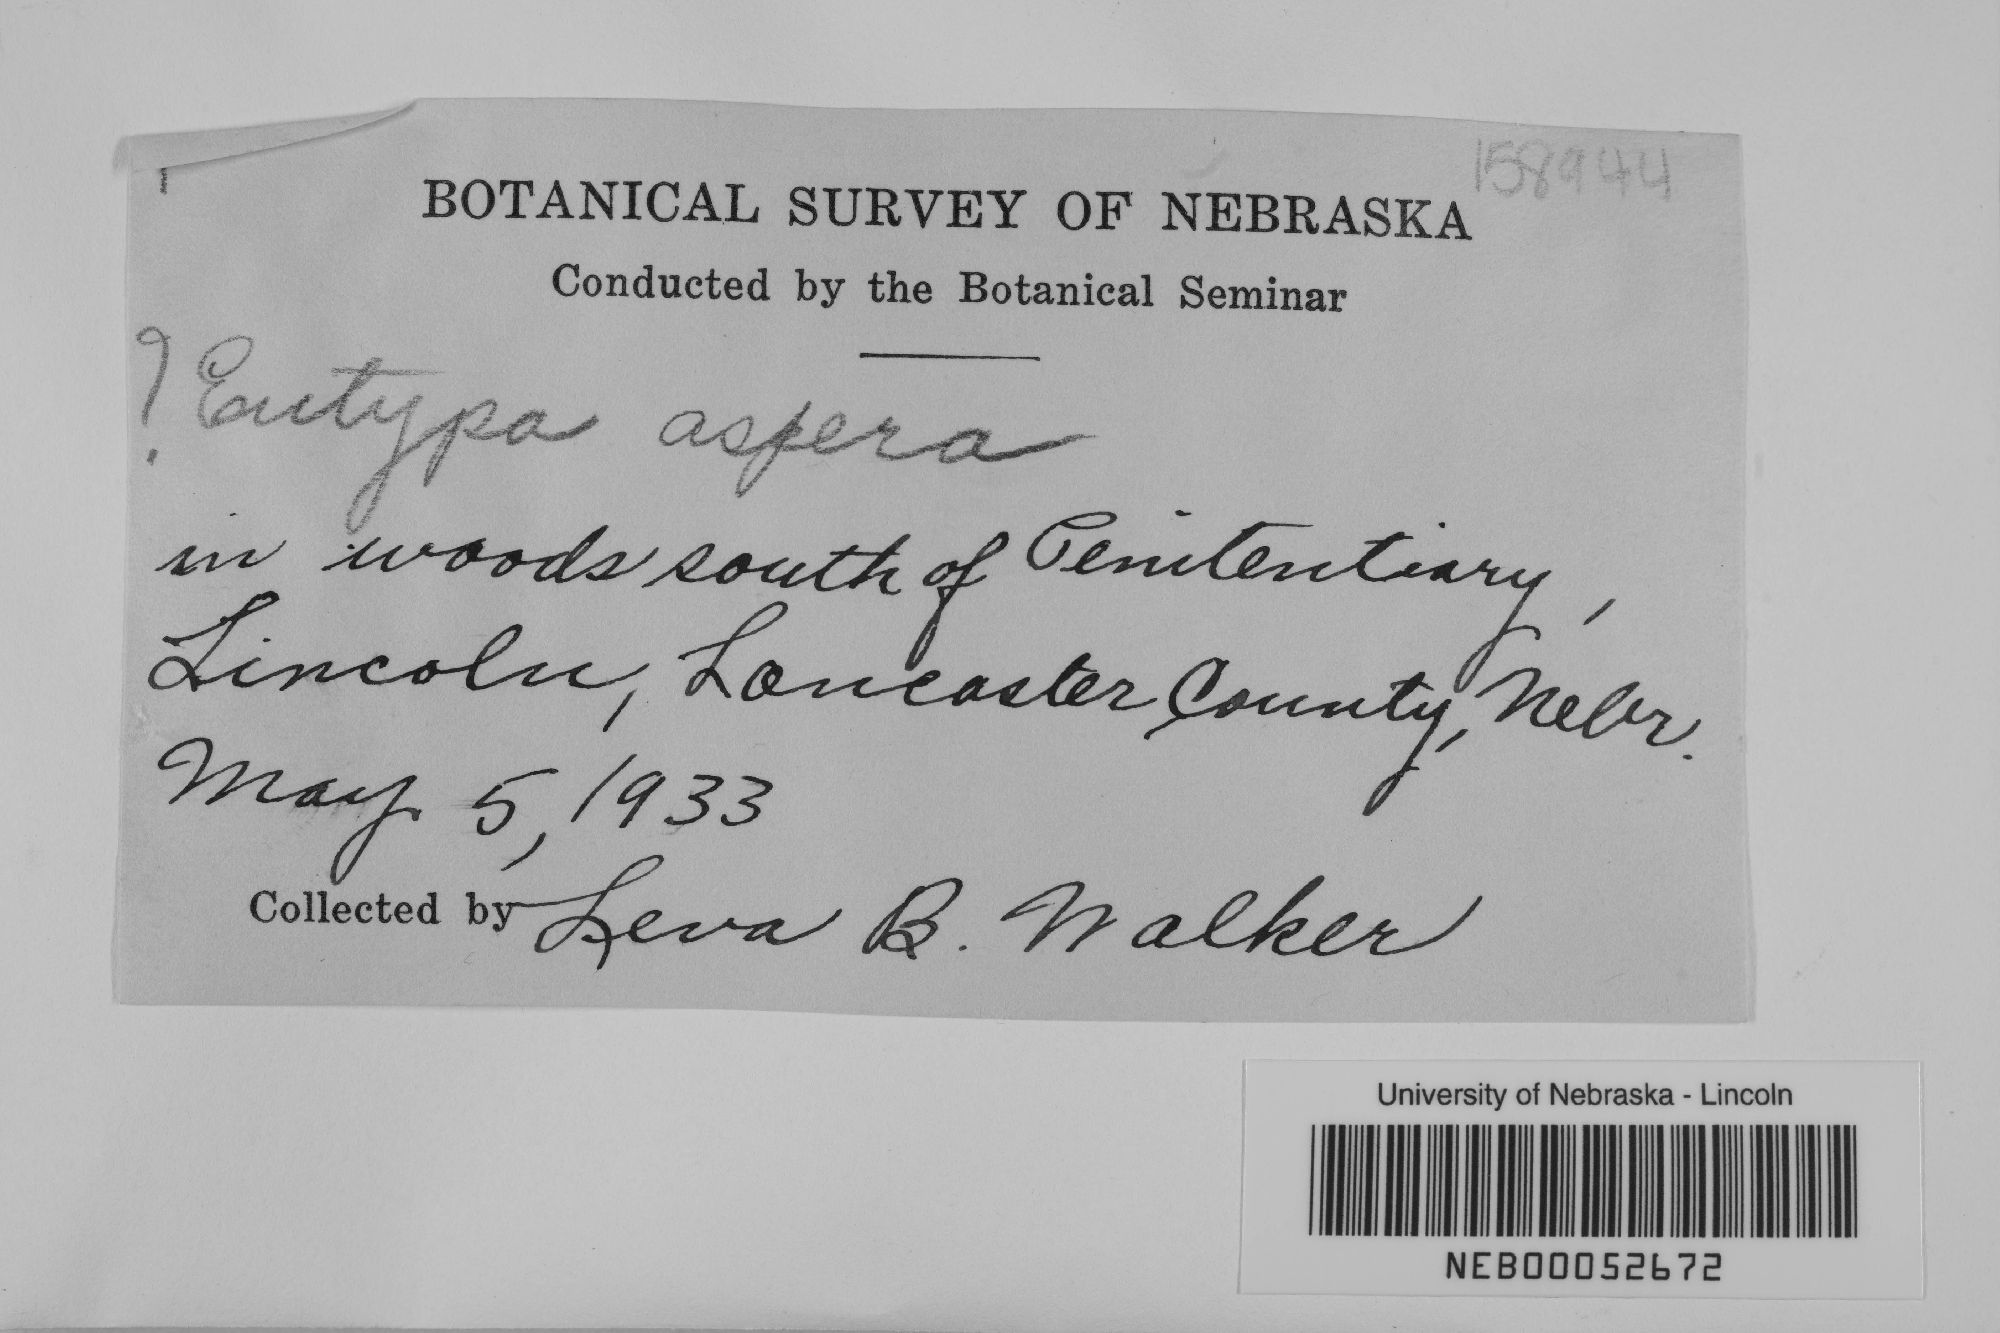 158944
BOTANICAL SURVEY OF NEBRASKA
Conducted by the Botanical Seminar
? Eutypa aspera
in woods south of Penitentiary,
Lincoln, Lancaster County, Nebr.
May 5, 1933
Collected by Leva B. Walker
University of Nebraska - Lincoln
NEB00052672